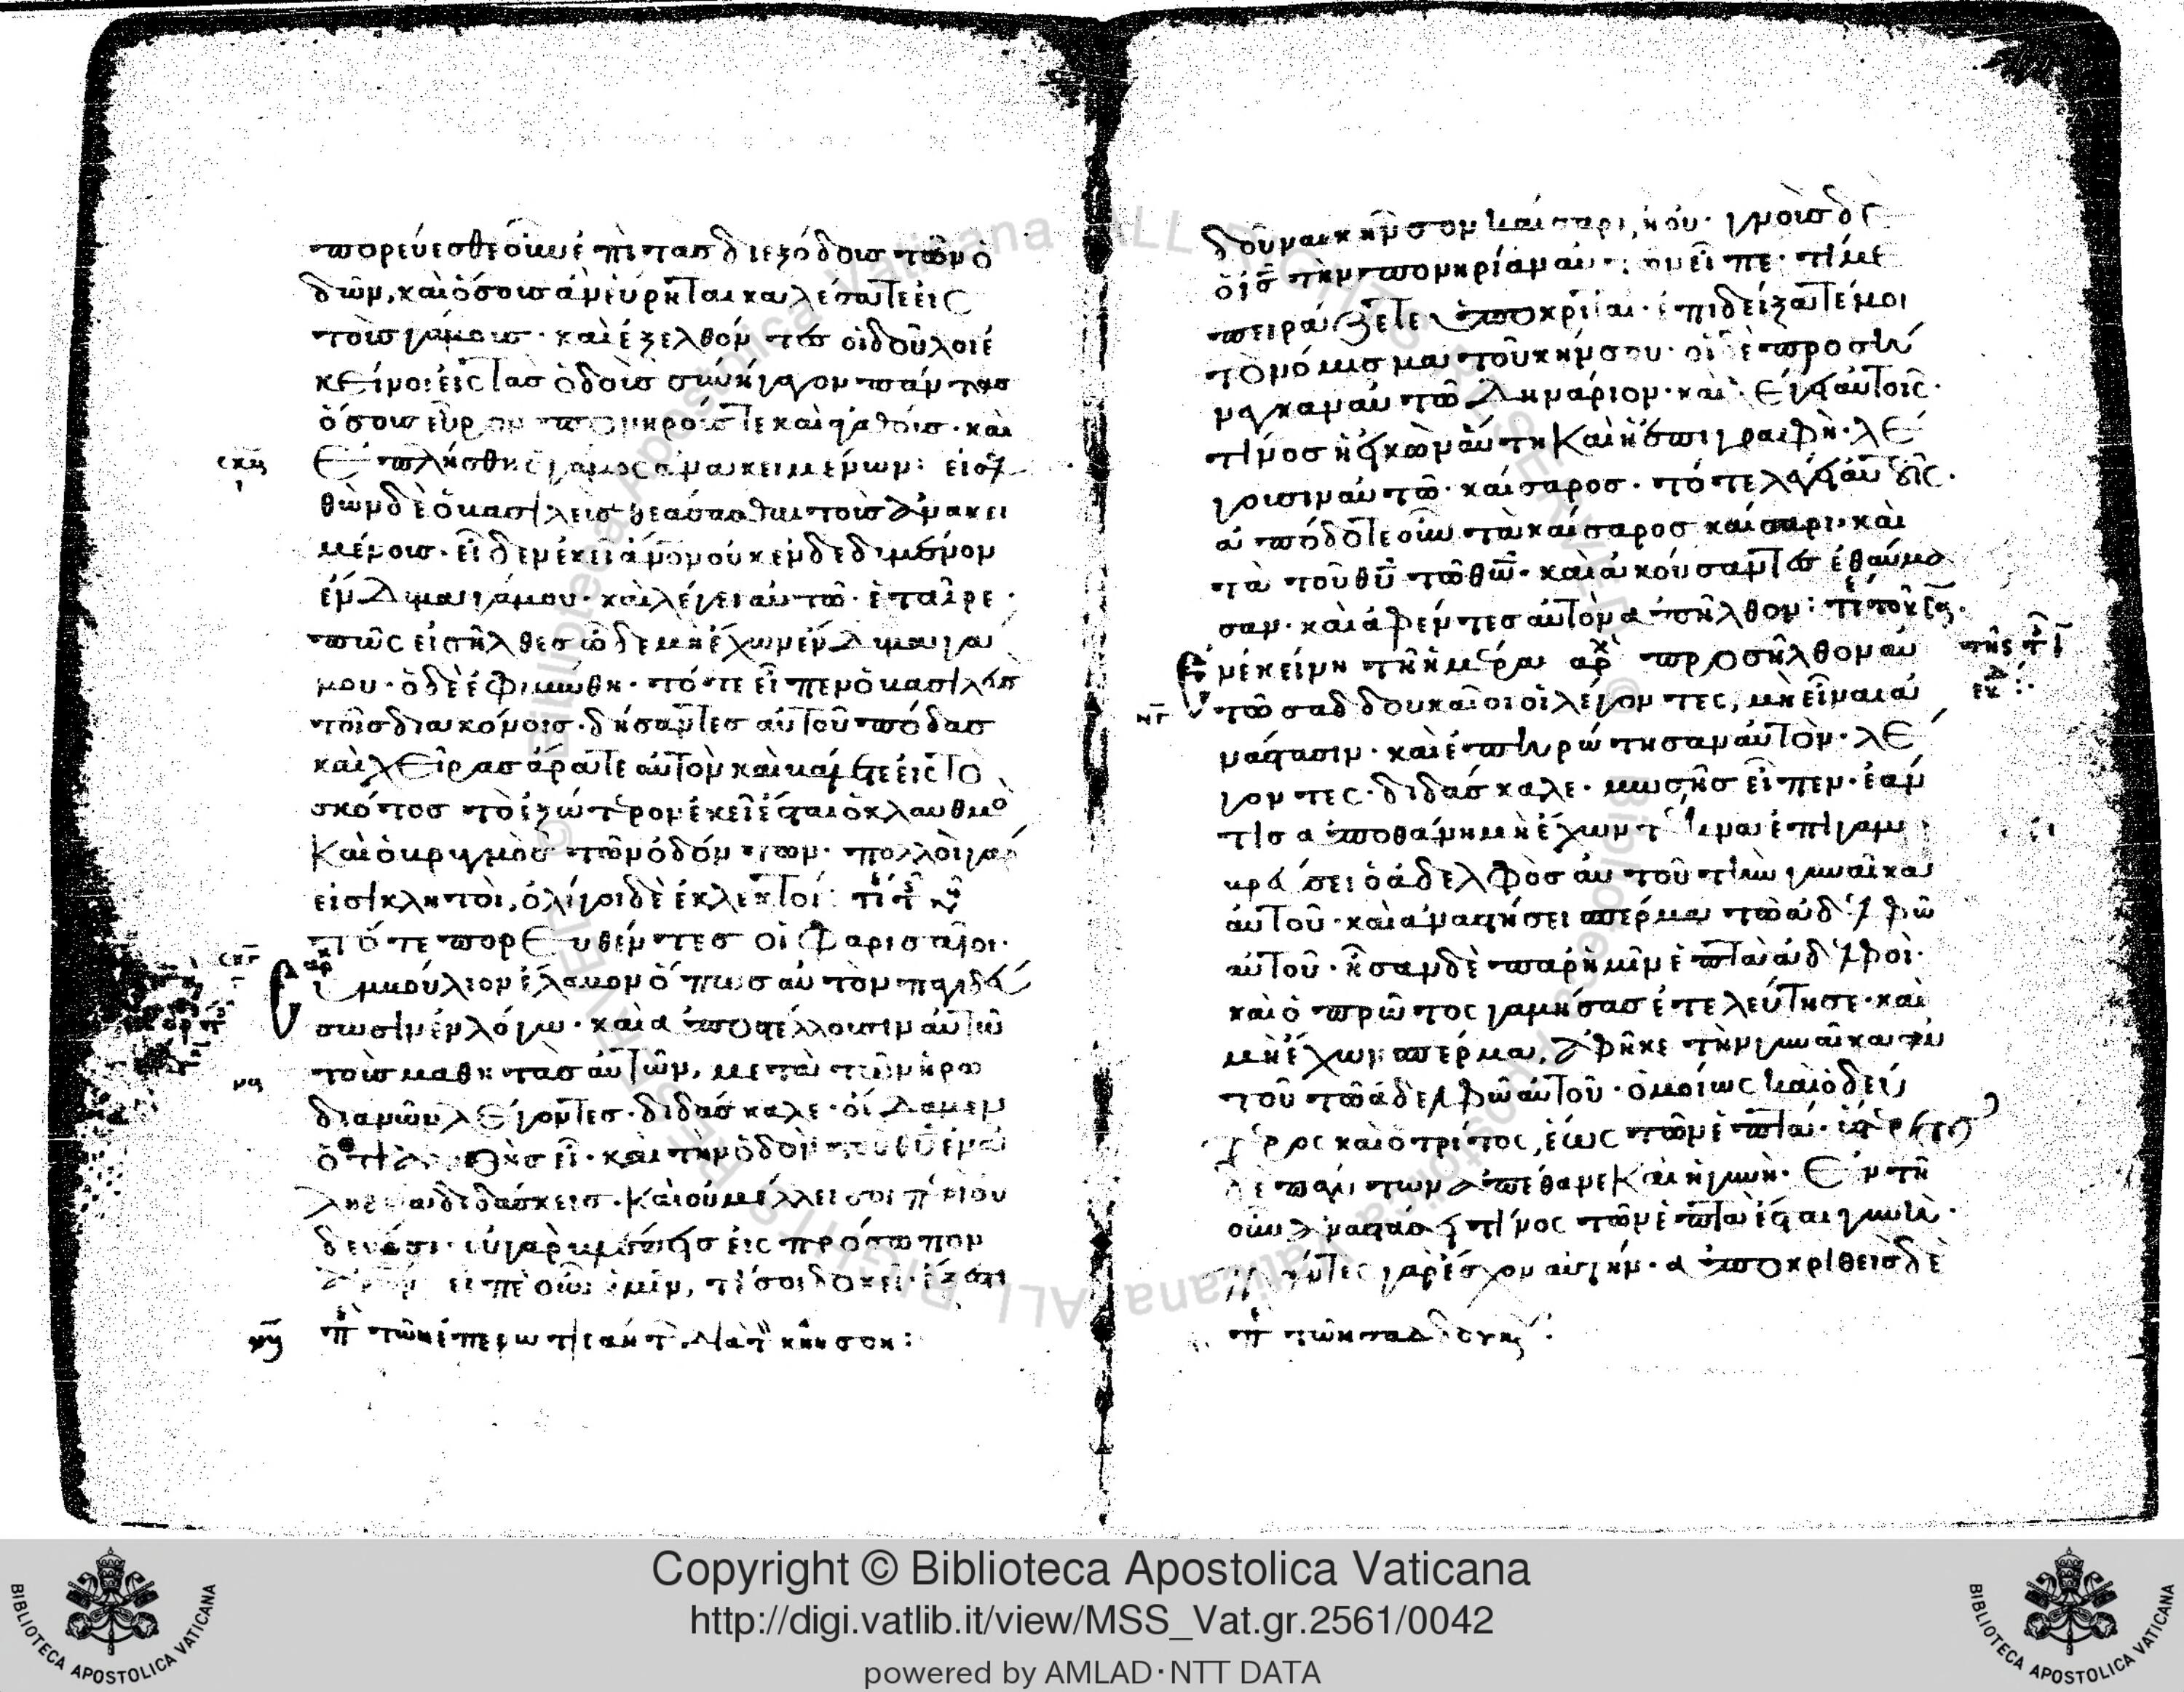 πορεύεσθε οὖν ἐπὶ τὰσ διεξόδουσ τῶν ὁ
δῶν, καὶ ὅσουσ ἂν εὕρηται καλέσατε εἰς
τοὺσ γάμουσ · καὶ ἐξελθόντεσ οἱ δοῦλοι ἐ
κεῖνοι εἰς τὰσ ὁδοὺσ συνήγαγον πάντασ
ὅσουσ εὗρον πονηρούς τε καὶ ἀγαθούσ · καὶ
ἐπλήσθη ὁ γάμος ἀνακειμένων : εἰσελ
θὼν δὲ ὁ βασιλεὺσ θεάσασθαι τοὺσ ἀνακει
μένουσ · εἶδεν ἐκεῖ ἄνον οὐκ ἐνδεδυμένον
ἔνδυμα γάμου · καὶ λέγει αὐτῶ · ἑταῖρε ·
πῶς εἰσῆλθεσ ὧδε μὴ ἔχων ἔνδυμα γά
μου · ὁ δὲ ἐφιμώθη · τότε εἶπεν ὁ βασιλεὺσ
τοῖσ διακόνοισ · δήσαντεσ αὐτοῦ πόδασ
καὶ χεῖρασ ἄρατε αὐτὸν καὶ βάλετε εἰς τὸ
σκότοσ τὸ ἐξώτερον ἐκεῖ ἔσται ὁ κλαυθμὸ
καὶ ὁ βρυγμὸσ τῶν ὀδόντων · πολλοὶ γάρ
εἰσὶ κλητοὶ, ὀλίγοι δὲ ἐκλεκτοί :
Τότε πορευθέντεσ οἱ Φαρισαῖοι ·
συμβούλιον ἔλαβον ὅπωσ αὐτὸν παγιδεύ
σωσιν ἐν λόγω · καὶ ἀποστέλλουσιν αὐτῶ
τοὺσ μαθητὰσ αὐτῶν, μετὰ τῶν ἡρω
διανῶν λέγοντεσ · διδάσκαλε · οἴδαμεν
ὅτι ἀληθὴσ εἶ · καὶ τὴν ὁδὸν τοῦ θυ ἐν ἀ
ληθεία διδάσκεισ · καὶ οὐ μέλλει σοι περὶ οὐ
δενόσ · οὐ γὰρ βλέπεισ εἰς πρόσωπον
εἰπὲ οὖν ἡμῖν, τί σοι δοκεῖ · ἔξεστι
τῶν ἐπερωτησάντ διὰ τ κῆνσον :
δοῦναι κῆνσον καίσαρι, ἢ οὔ · γνοὺσ δὲ
ὁ ις τὴν πονηρίαν αὐτῶν εἶπε · τί με
πειράζετε ὑποκριταὶ · ἐπιδείξατέ μοι
τὸ νόμισμα τοῦ κήνσου · οἱ δὲ προσή
νεγκαν αὐτῶ δηνάριον · καὶ λέγει αὐτοῖς ·
τίνοσ ἡ εἰκὼν αὕτη καὶ ἡ ἐπιγραφὴ · λέ
γουσιν αὐτῶ · καίσαροσ · τότε λέγει αὐτοῖς ·
ἀπόδοτε οὖν τὰ καίσαροσ καίσαρι · καὶ
τὰ τοῦ θυ τῶ θω · καὶ ἀκούσαντεσ ἐθαύμα
σαν · καὶ ἀφέντεσ αὐτὸν ἀπῆλθον :
Ἐν ἐκείνη τῆ ἡμέρα προσῆλθον αὐ
τῶ σαδδουκαῖοι οἱ λέγοντες, μὴ εἶναι ἀ
νάστασιν · καὶ ἐπηρώτησαν αὐτὸν · λέ
γοντες · διδάσκαλε · μωσῆσ εἶπεν · ἐάν
τισ ἀποθάνη μὴ ἔχων τέκνα ἐπιγαμ
βρεύσει ὁ ἀδελφὸσ αὐτοῦ τὴν γυναῖκα
αὐτοῦ · καὶ ἀναστήσει σπέρμα τῶ ἀδελφῶ
αὐτοῦ · ἦσαν δὲ παρ ἡμῖν ἑπτὰ ἀδελφοί ·
καὶ ὁ πρῶτος γαμήσασ ἐτελεύτησε · καὶ
μὴ ἔχων σπέρμα, ἀφῆκε τὴν γυναῖκα αὐ
τοῦ τῶ ἀδελφῶ αὐτοῦ · ὁμοίως καὶ ὁ δεύ
τερος καὶ ὁ τρίτος, ἕως τῶν ἑπτά · ὕστερον
δὲ πάντων ἀπέθανε καὶ ἡ γυνὴ · Ἐν τῆ
οὖν ἀναστάσει τίνος τῶν ἑπτὰ ἔσται γυνὴ ·
πάντες γὰρ ἔσχον αὐτήν · ἀποκριθεὶσ δὲ
τῶν σαδδουκ :
Copyright © Biblioteca Apostolica Vaticana
http://digi.vatlib.it/view/MSS_Vat.gr.2561/0042
powered by AMLAD·NTT DATA
BIBLIOTECA APOSTOLICA VATICANA
BIBLIOTECA APOSTOLICA VATICANA